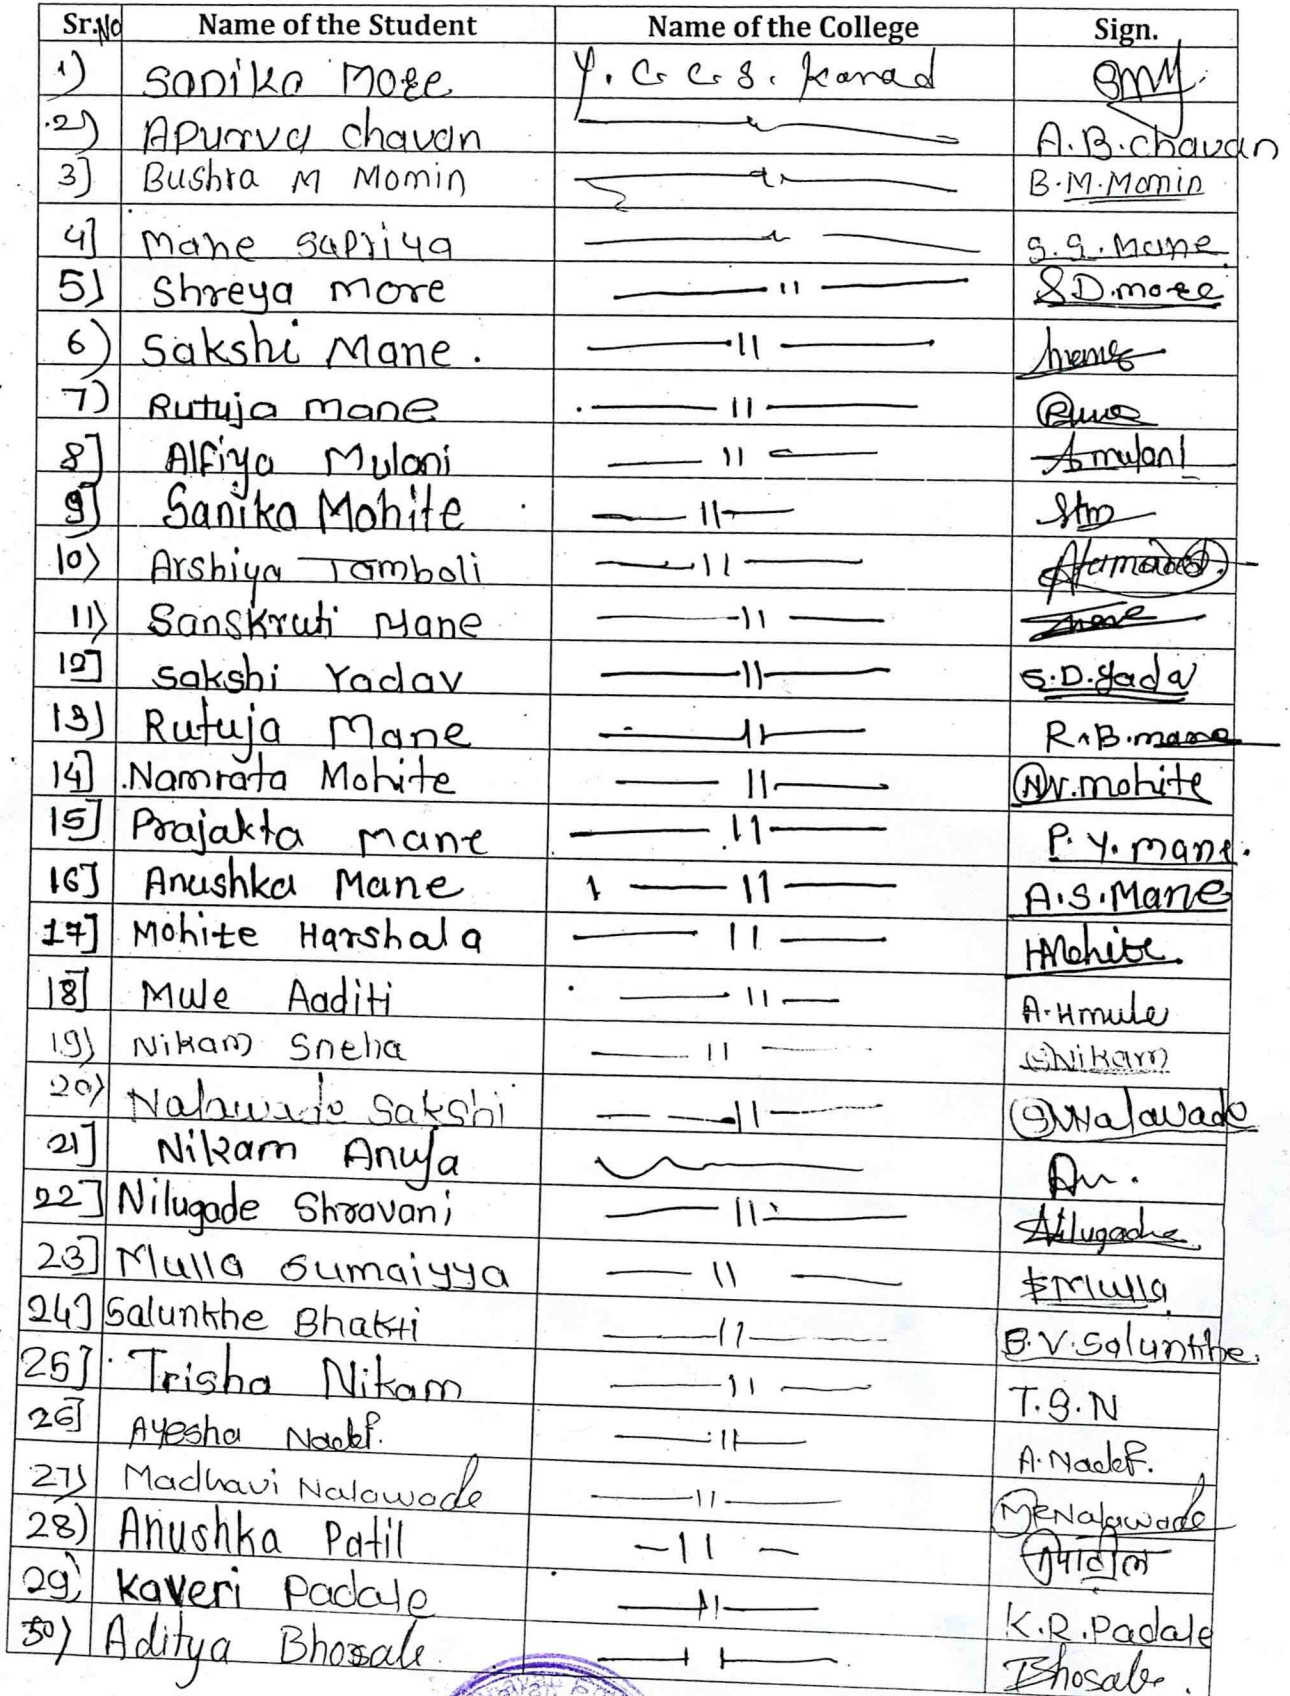 Sr.No Name of the Student Name of the College Sign.
1) Sanika More Y. C. C. S. Karad
2) Apurva Chavan A.B.Chavan
3] Bushra M Momin B.M.Momin
4] Mane Supriya S.S.Mane
5) Shreya More —〃— S.D.more
6) Sakshi Mane. —〃—
7) Rutuja Mane —〃—
8] Alfiya Mulani —〃— A mulani
9] Sanika Mohite —〃—
10) Arshiya Tamboli —〃—
11) Sanskruti Mane —〃—
12] Sakshi Yadav —〃— S.D.Yadav
13) Rutuja Mane —〃— R.B.mane
14] Namrata Mohite —〃— N.mohite
15] Prajakta Mane —〃— P. Y. mane.
16] Anushka Mane —〃— A.S.Mane
17] Mohite Harshala —〃— HMohite.
18] Mule Aaditi —〃— A.Hmule
19) Nikam Sneha —〃— SNikam
20) Nalawade Sakshi —〃— SNalawade
21] Nikam Anuja
22] Nilugade Shravani —〃— Nilugade
23] Mulla Sumaiyya —〃— SMulla
24] Salunkhe Bhakti —〃— B.V.Salunkhe.
25] Trisha Nikam —〃— T.S.N
26] Ayesha Nadaf. —〃— A.Nadaf.
27) Madhavi Nalawade —〃— Nalawade
28) Anushka Patil —〃— पाटील
29) Kaveri Padale —〃— K.R.Padale
30) Aditya Bhosale —〃— Bhosale.